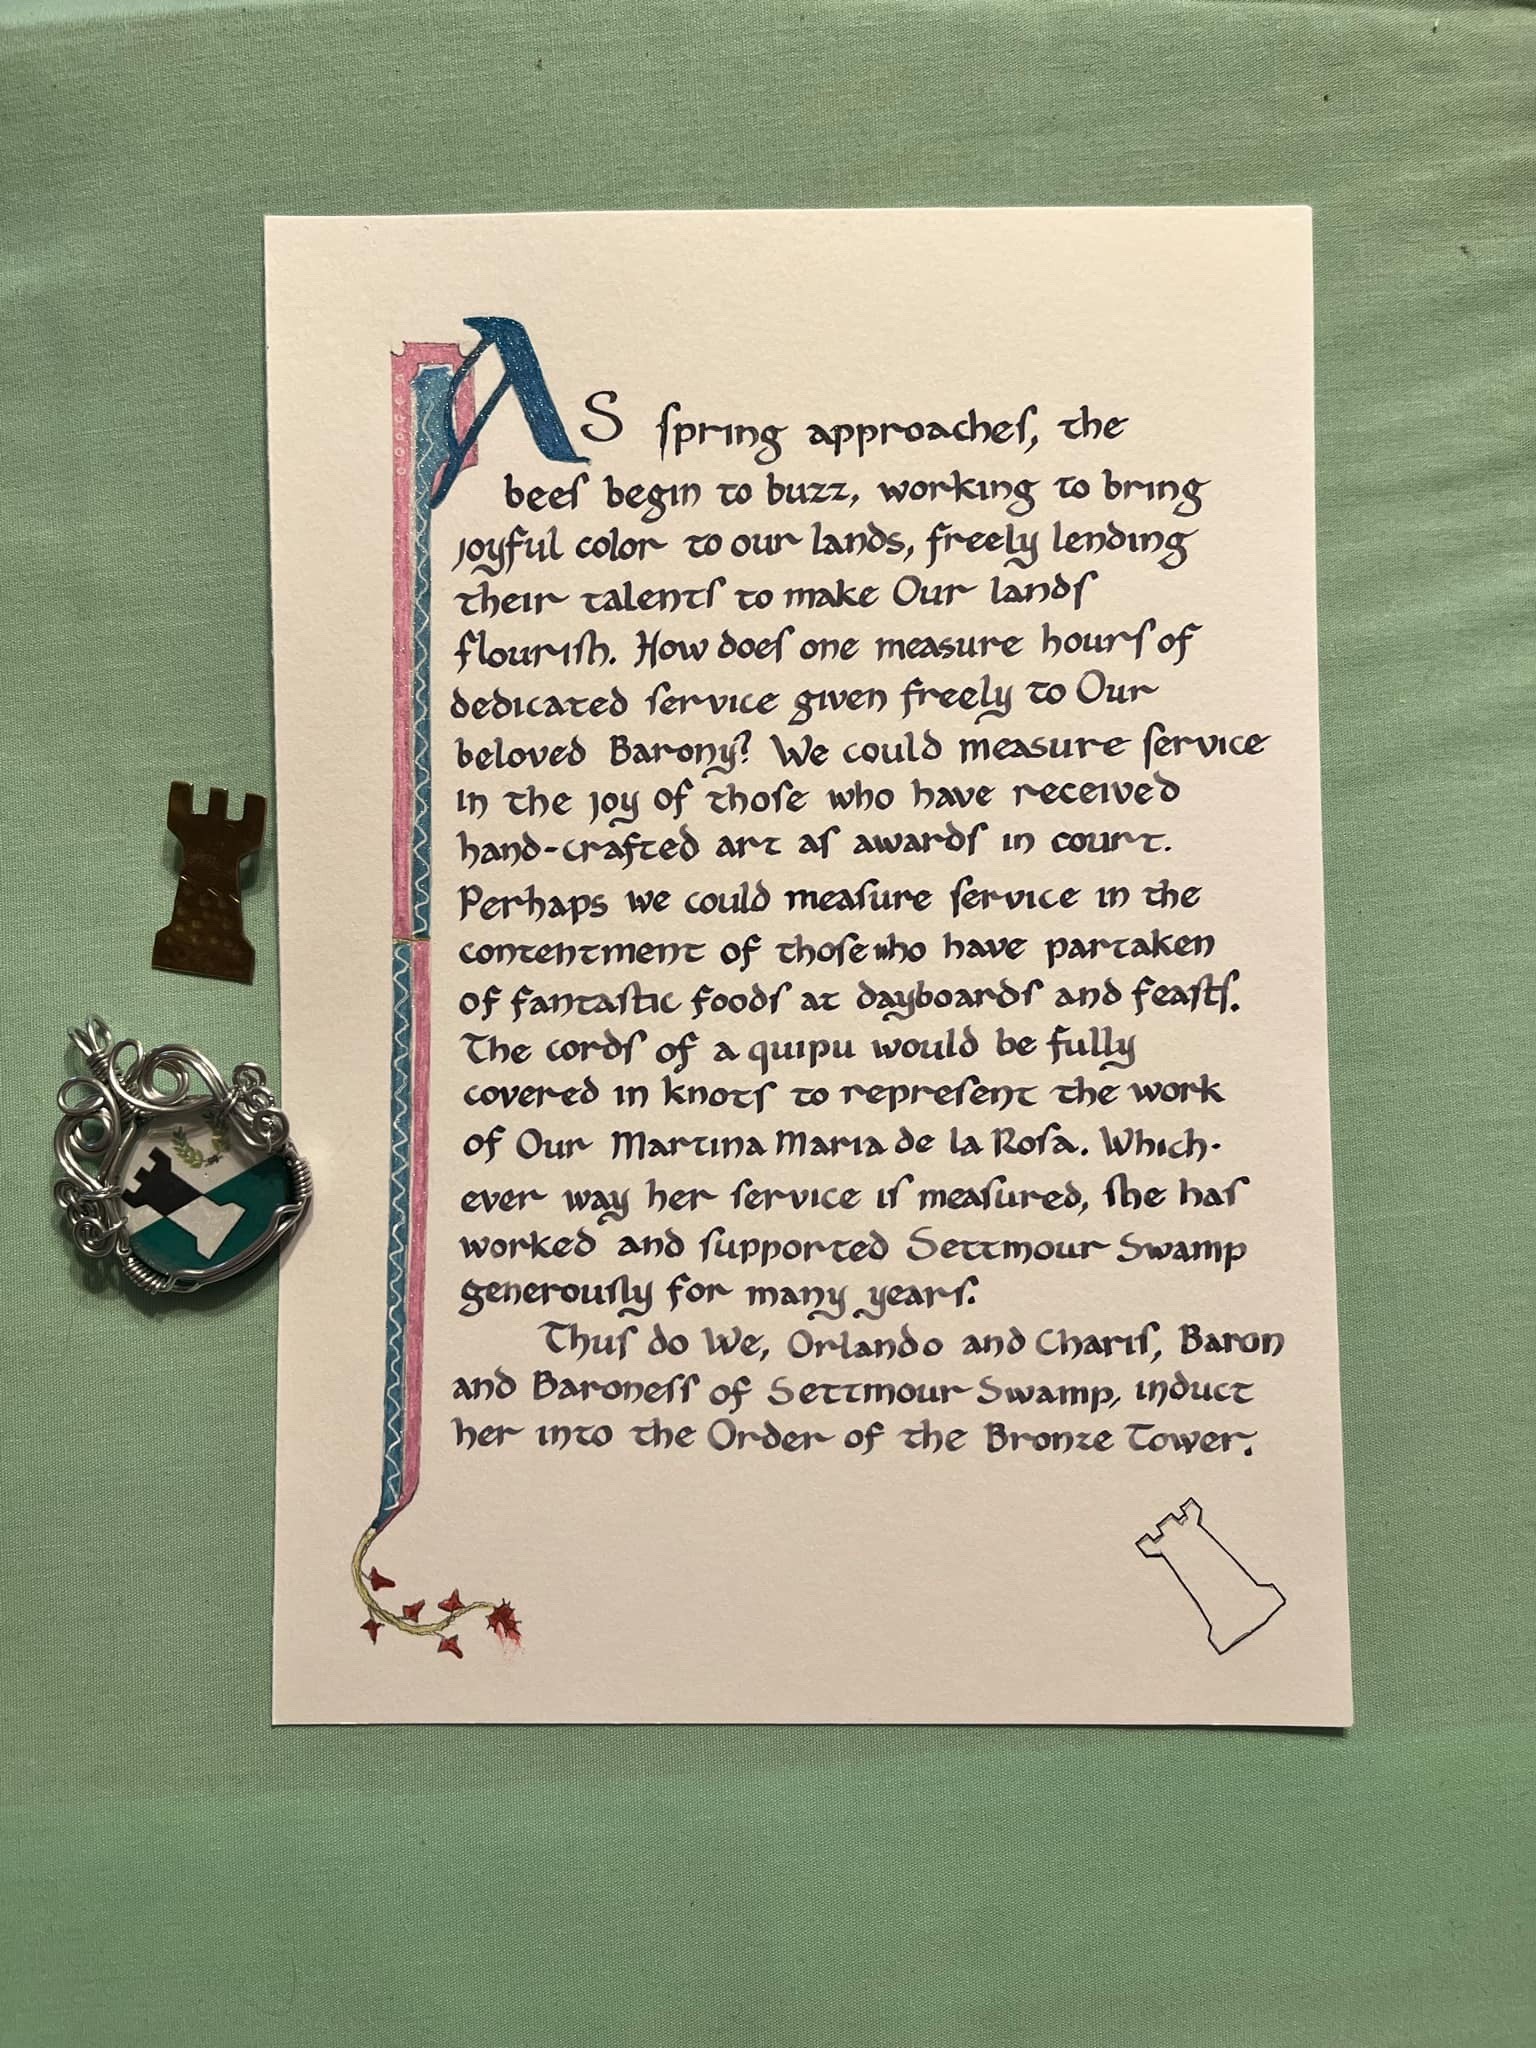 AS spring approaches, the
bees begin to buzz, working to bring
joyful color to our lands, freely lending
their talents to make Our lands
flourish. How does one measure hours of
dedicated service given freely to Our
beloved Barony? We could measure service
in the joy of those who have received
hand-crafted art as awards in court.
Perhaps we could measure service in the
contentment of those who have partaken
of fantastic foods at dayboards and feasts.
The cords of a quipu would be fully
covered in knots to represent the work
of Our Martina Maria de la Rosa. Which-
ever way her service is measured, she has
worked and supported Settmour Swamp
generously for many years.
Thus do We, Orlando and Charis, Baron
and Baroness of Settmour Swamp, induct
her into the Order of the Bronze Tower.